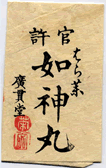 官許
はら薬
如神丸
廣貫堂